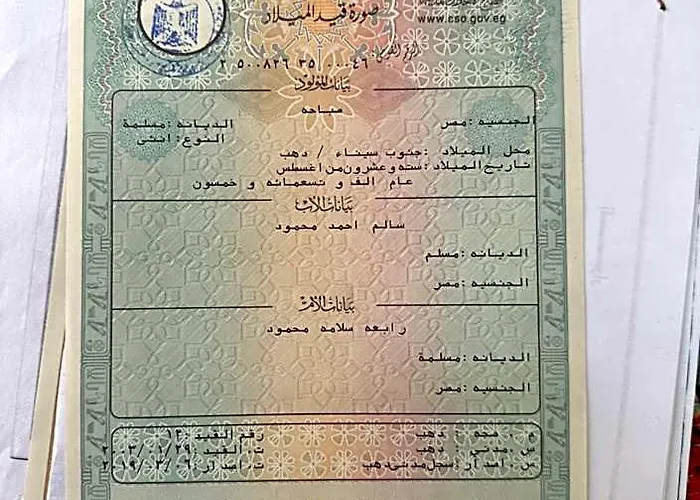 صورة قيد الميلاد
www.cso.gov.eg
الرقم القومى
٢ ٥٠٠٨٢٦ ٣٥ ٠٠٠٤٦
بيانات المولود
صباحه
الجنسيه :مصر الديانه :مسلمة
النوع: انثى
محل الميلاد :جنوب سيناء / دهب
تاريخ الميلاد :سته وعشرون من اغسطس
عام الف و تسعمائه و خمسون
بيانات الأب
سالم احمد محمود
الديانه :مسلم
الجنسيه :مصر
بيانات الأم
رابعه سلامه محمود
الديانه :مسلمة
الجنسيه :مصر
م . صحة : دهب رقم القيد :١٢
س.مدنى : دهب ت. القيد :
س. اصدار :سجل مدنى دهب ت. اصدار :